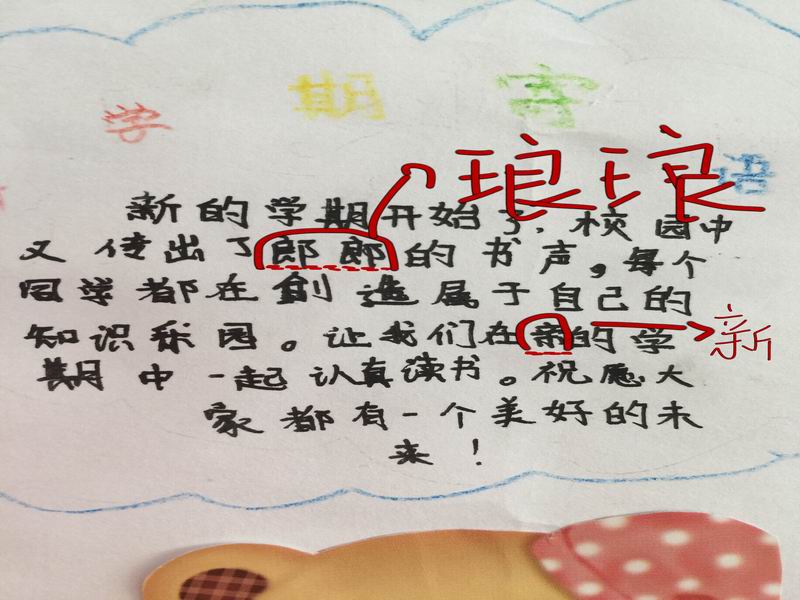 学期寄语
琅琅
新的学期开始了，校园中
又传出了郎郎的书声，每个
同学都在创造属于自己的
知识乐园。让我们在亲的学
新
期中一起认真读书。祝愿大
家都有一个美好的未
来！